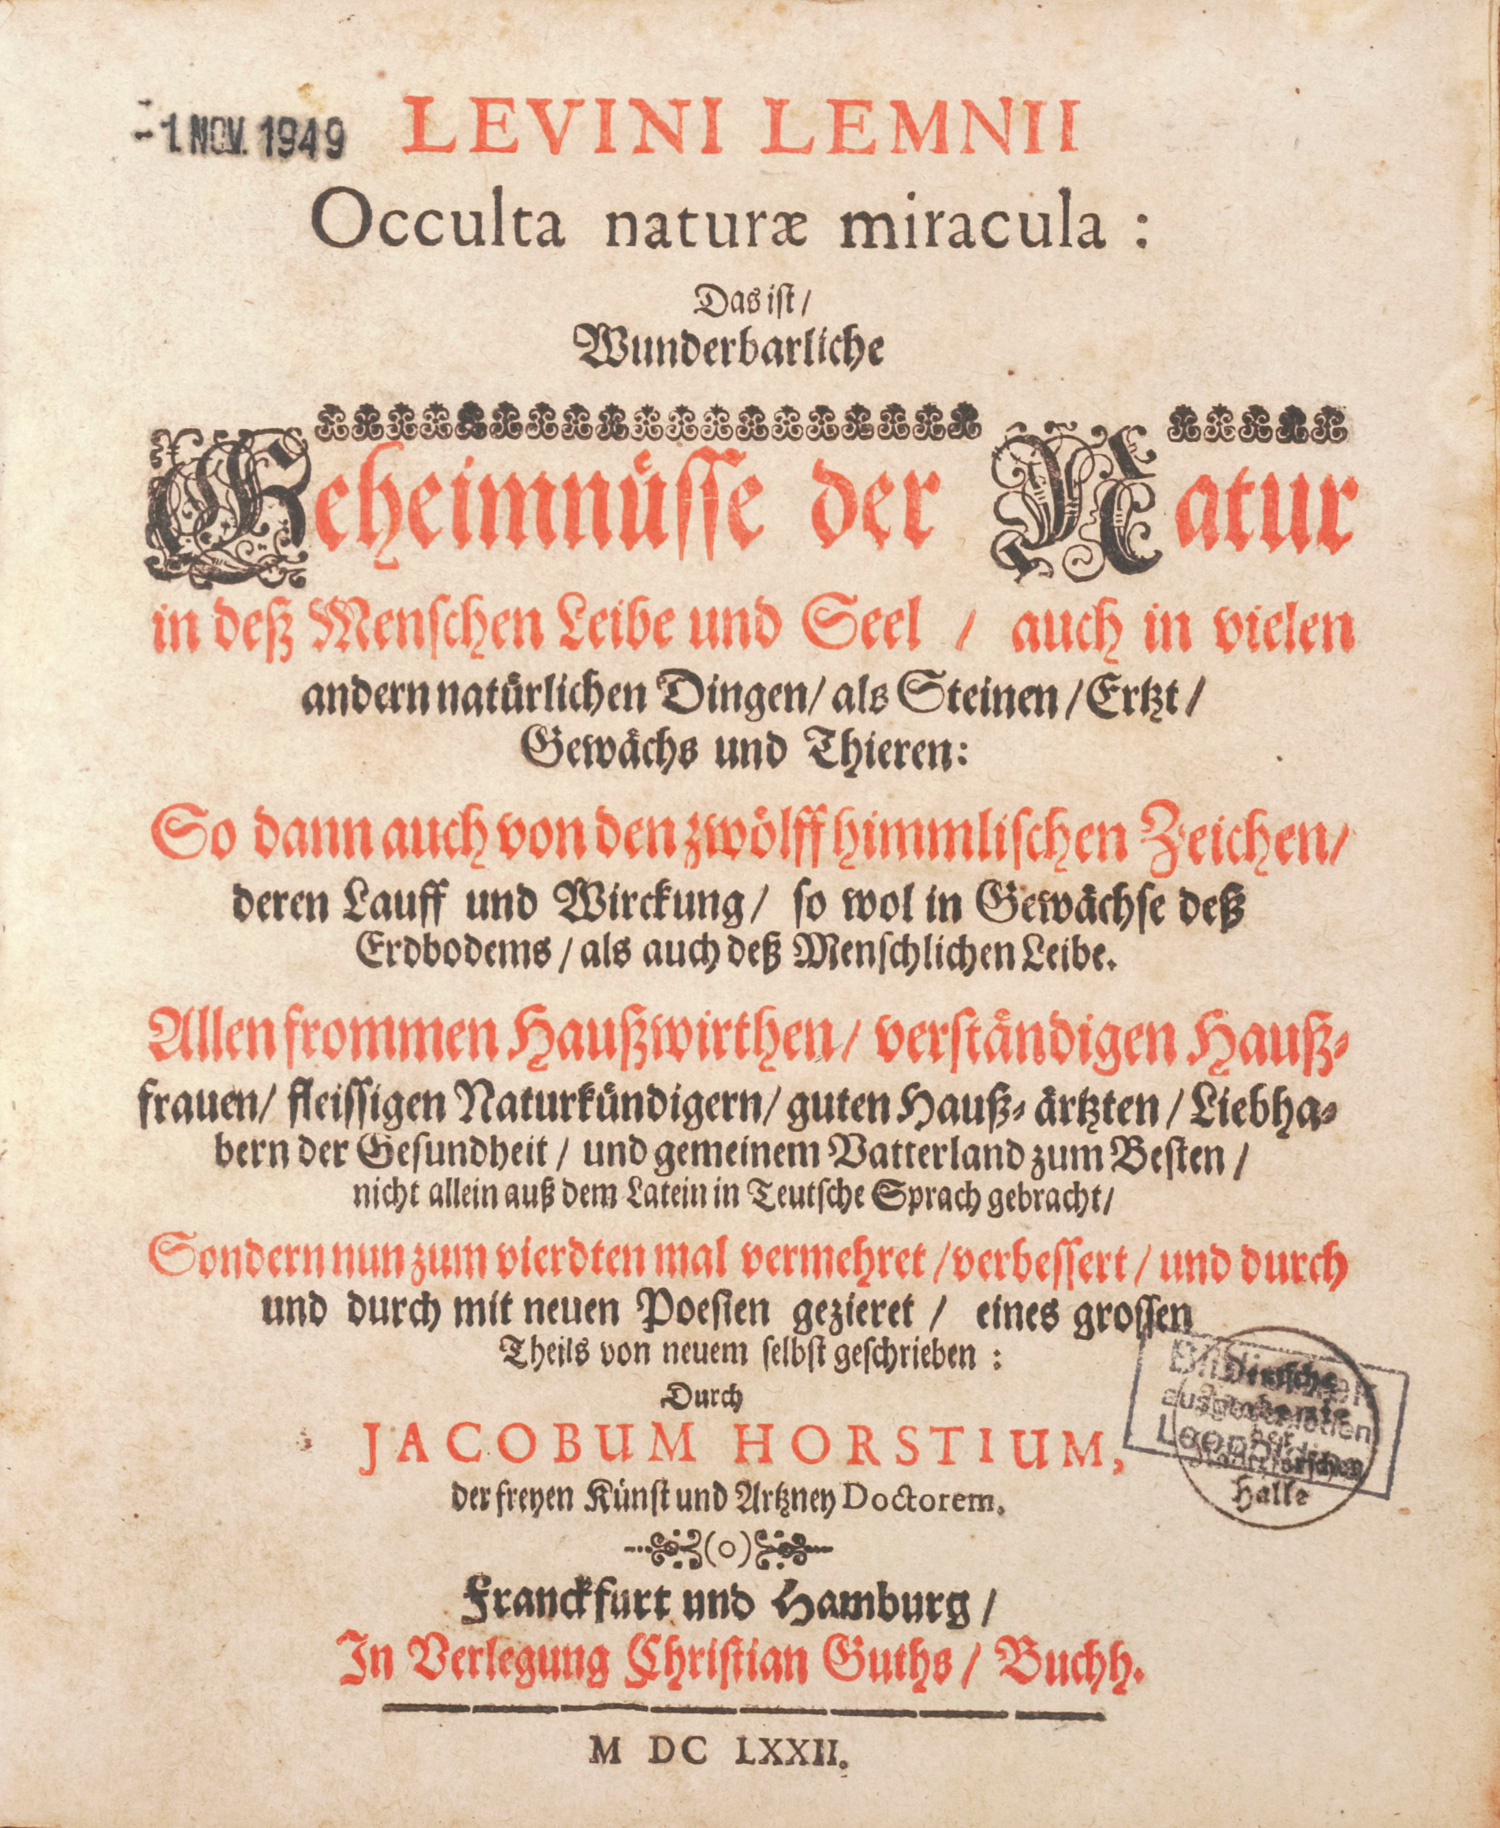 - 1. NOV. 1949
LEVINI LEMNII
Occulta naturæ miracula :
Das iſt /
Wunderbarliche
Geheimnüſſe der Natur
in deß Menſchen Leibe und Seel / auch in vielen
andern natürlichen Dingen / als Steinen / Ertzt /
Gewächs und Thieren:
So dann auch von den zwölff himmliſchen Zeichen /
deren Lauff und Wirckung / ſo wol in Gewächſe deß
Erdbodems / als auch deß Menſchlichen Leibe.
Allen frommen Haußwirthen / verſtändigen Hauß-
frauen / fleiſſigen Naturkündigern / guten Hauß- ärtzten / Liebha-
bern der Geſundheit / und gemeinem Vatterland zum Beſten /
nicht allein auß dem Latein in Teutſche Sprach gebracht /
Sondern nun zum vierdten mal vermehret / verbeſſert / und durch
und durch mit neuen Poeſien gezieret / eines groſſen
Theils von neuem ſelbſt geſchrieben :
Durch
JACOBUM HORSTIUM,
der freyen Künſt und Artzney Doctorem.
(o)
Franckfurt und Hamburg /
In Verlegung Chriſtian Guths / Buchh.
M DC LXXII.
Deutsche
Halle